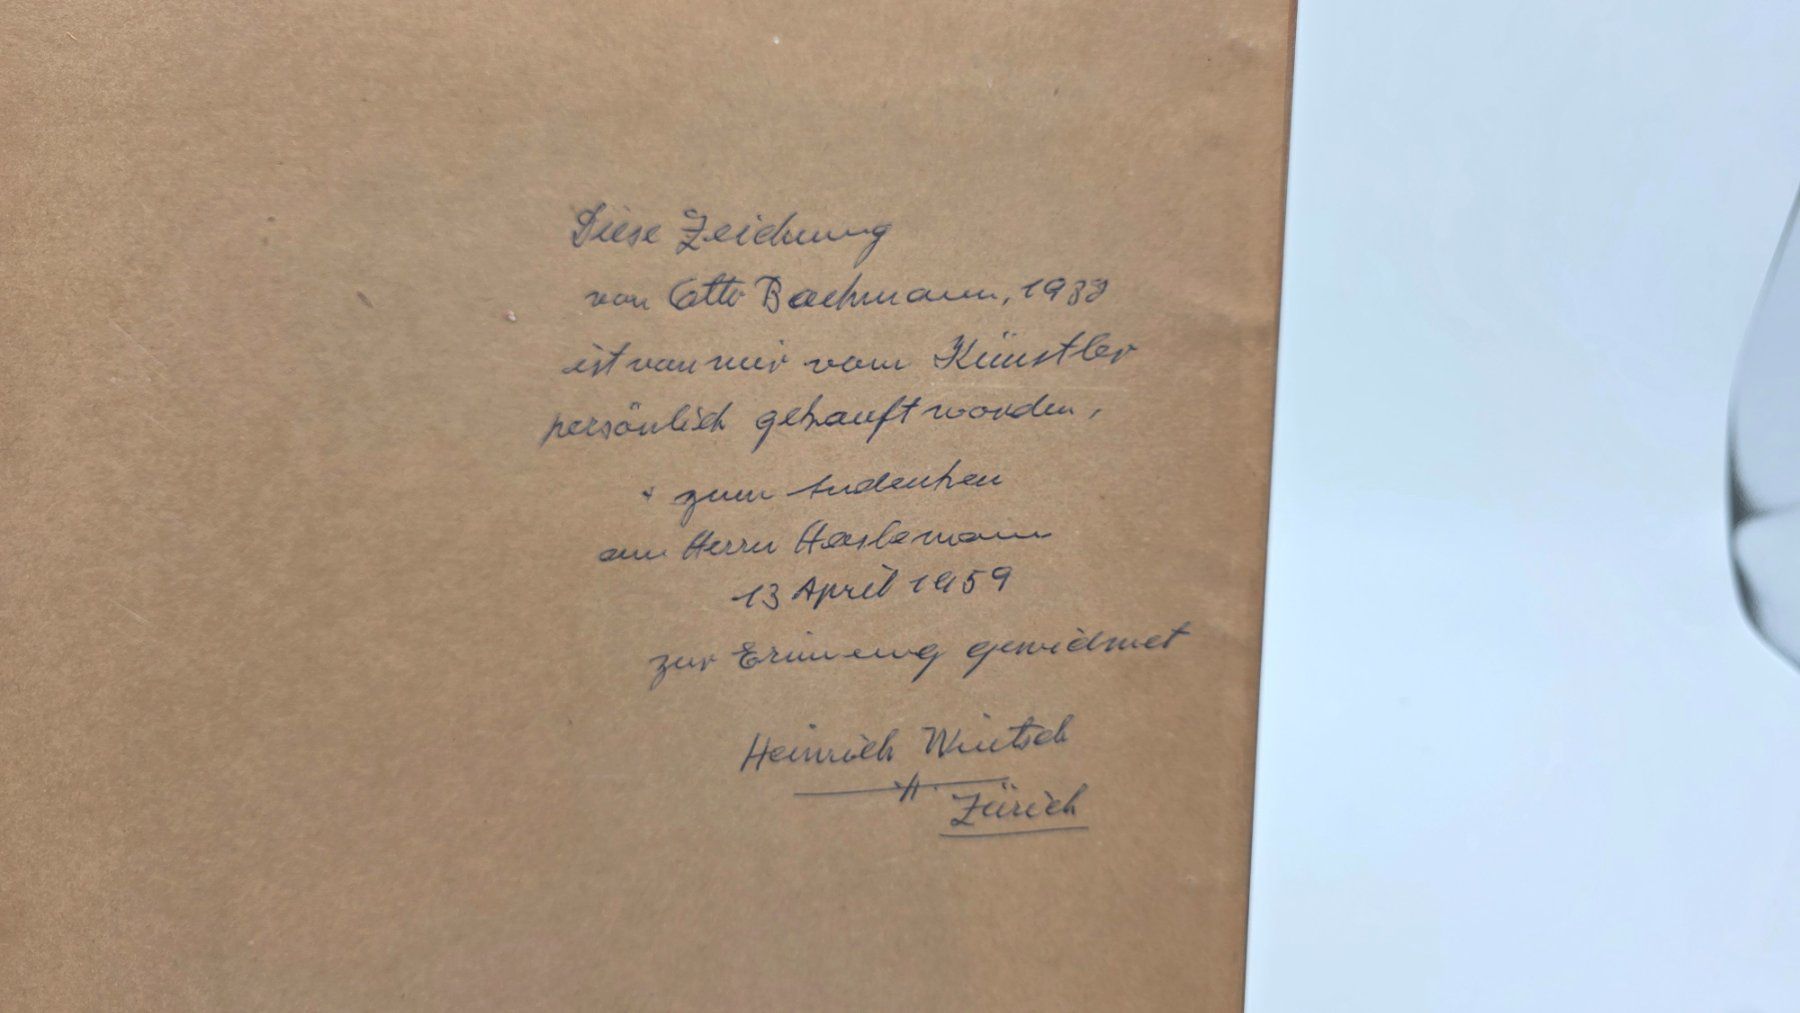 Diese Zeichnung
von Otto Bachmann, 1938
ist von mir vom Künstler
persönlich gekauft worden,
+ zum Andenken
an Herrn
13 April 1959
zur Erinnerung gewidmet
Heinrich Wintsch
H.
Zürich